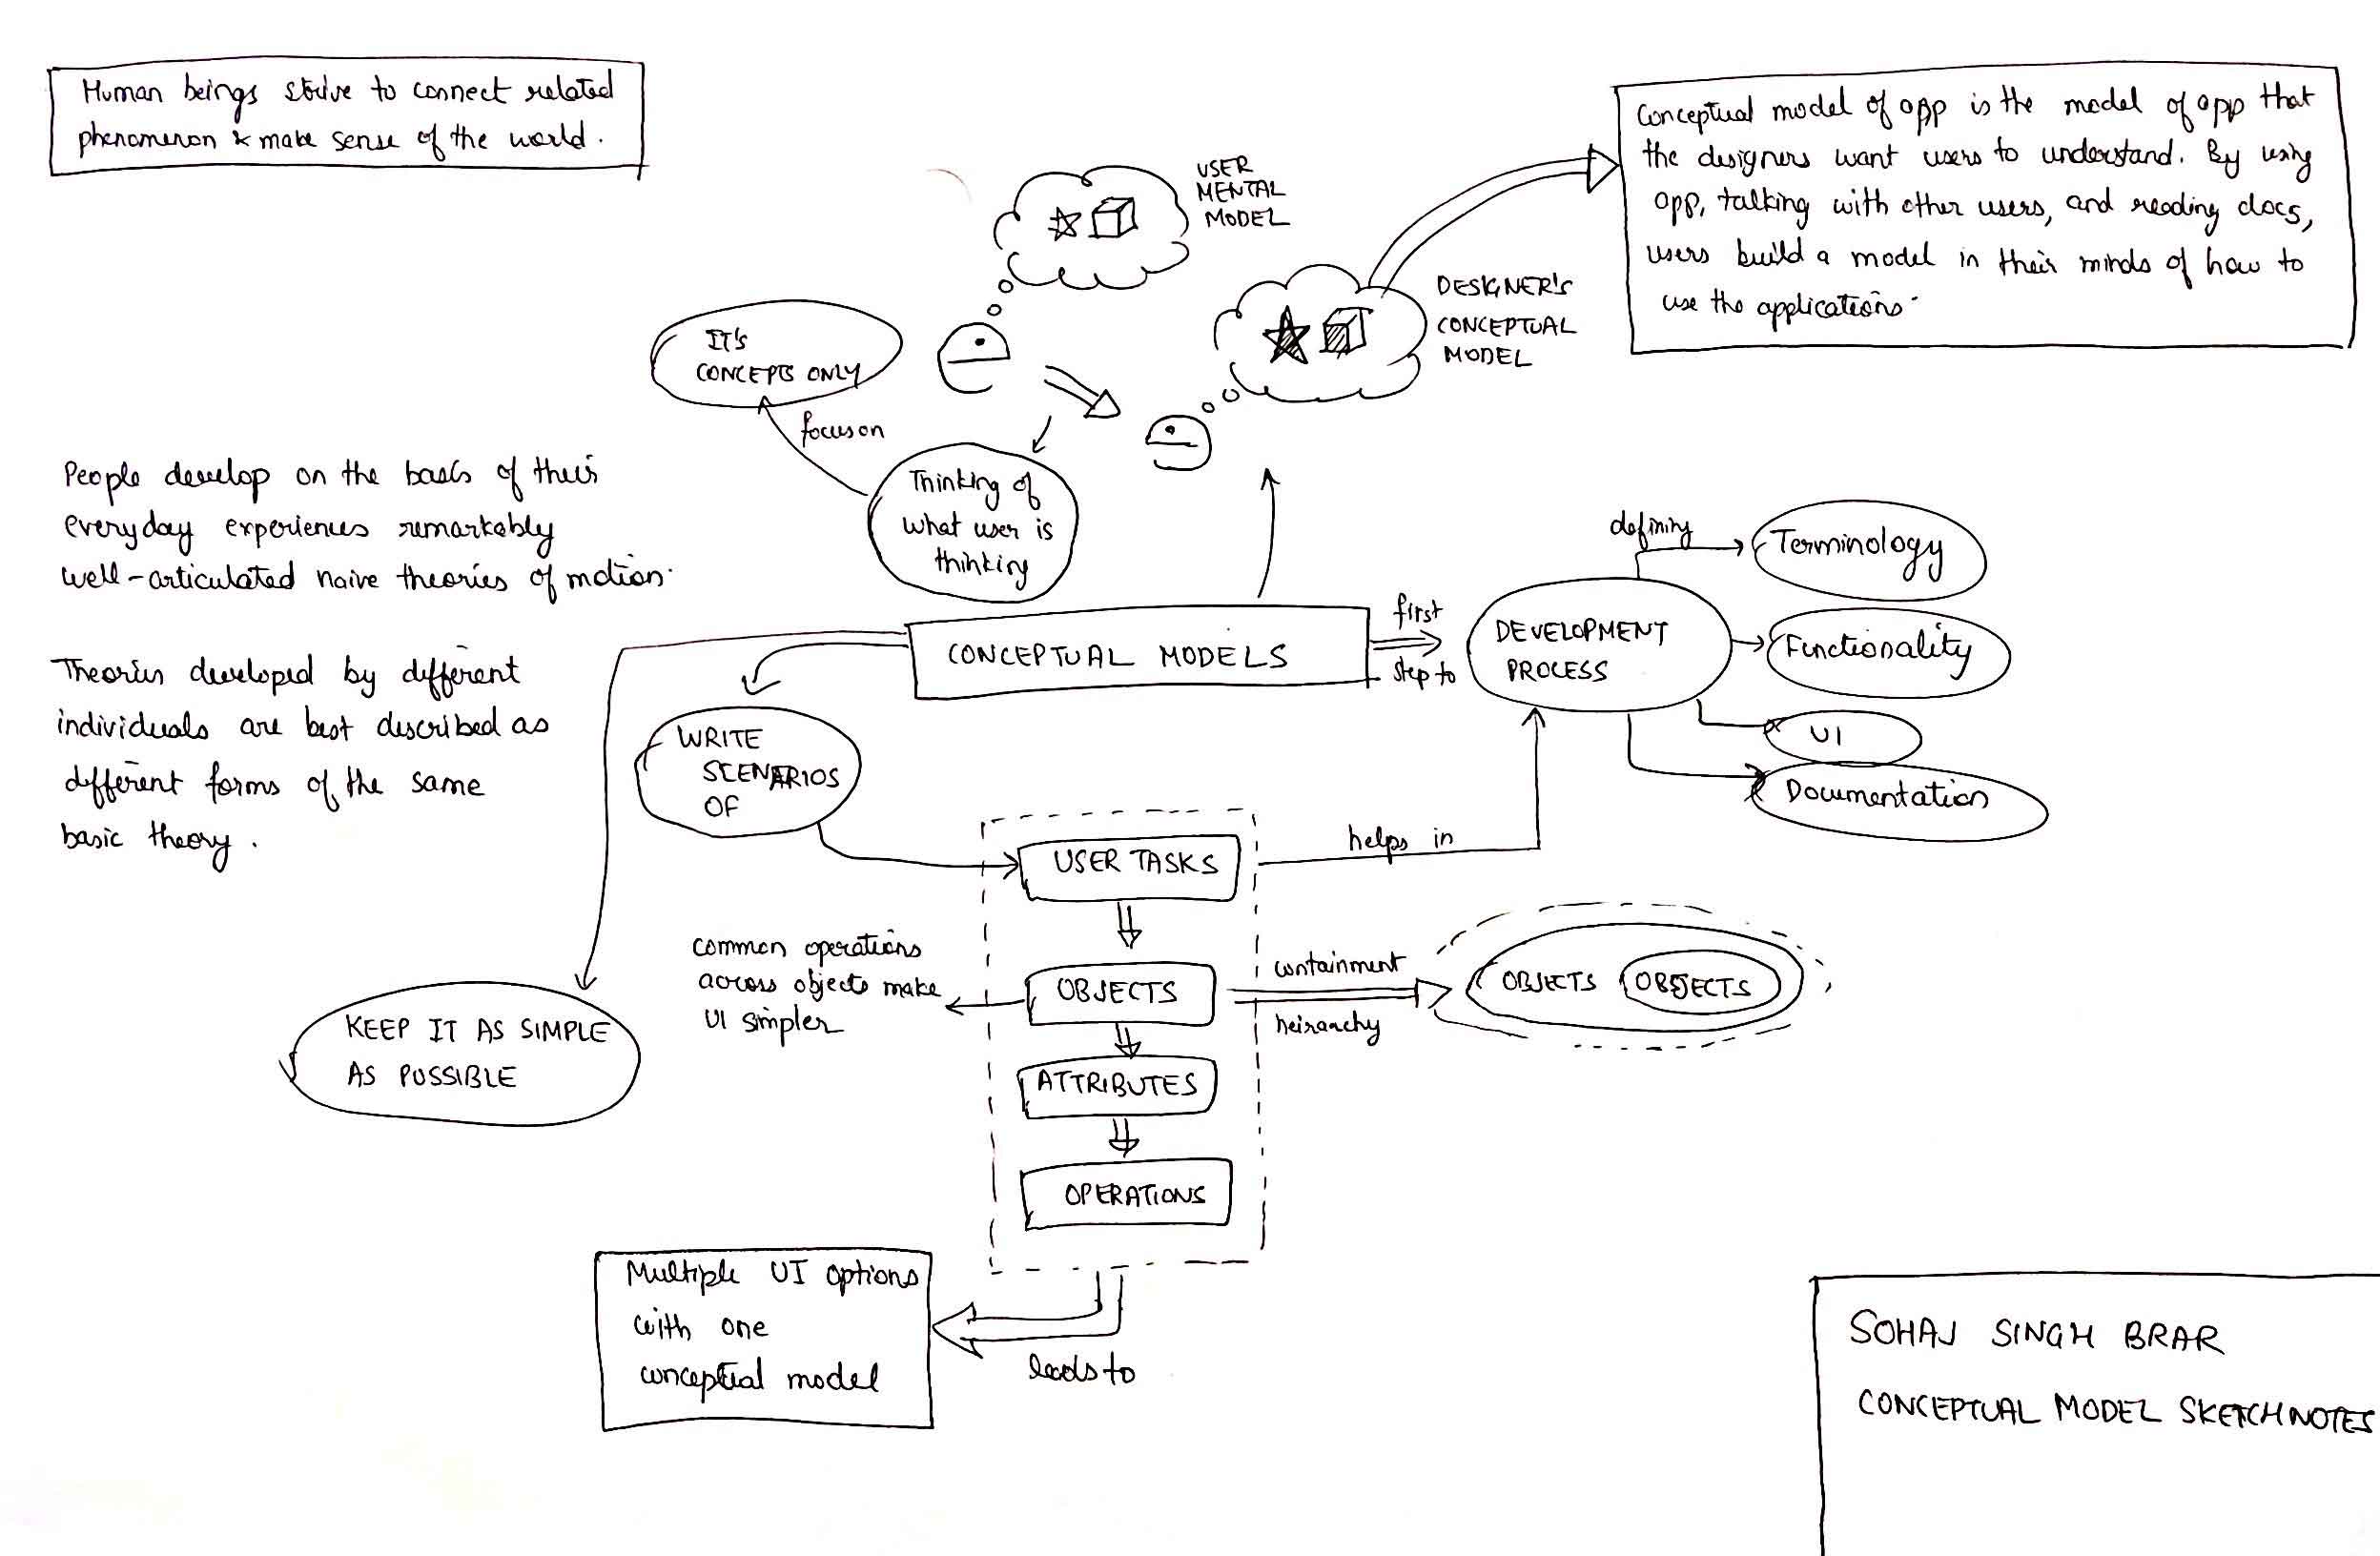 Human beings strive to connect related
phenomenon & make sense of the world.
Conceptual model of app is the model of app that
the designers want users to understand. By using
app, talking with other users, and reading docs,
users build a model in their minds of how to
use the applications.
USER
MENTAL
MODEL
DESIGNER'S
CONCEPTUAL
MODEL
IT'S
CONCEPTS ONLY
focus on
Thinking of
what user is
thinking
People develop on the basis of their
everyday experiences remarkably
well-articulated naive theories of motion.
Theories developed by different
individuals are best described as
different forms of the same
basic theory.
CONCEPTUAL MODELS
first
step to
DEVELOPMENT
PROCESS
defining
Terminology
Functionality
UI
Documentation
WRITE
SCENARIOS
OF
USER TASKS
helps in
common operations
across objects make
UI simpler
OBJECTS
containment
heirarchy
OBJECTS OBJECTS
ATTRIBUTES
OPERATIONS
KEEP IT AS SIMPLE
AS POSSIBLE
Multiple UI options
with one
conceptual model
leads to
SOHAJ SINGH BRAR
CONCEPTUAL MODEL SKETCHNOTES